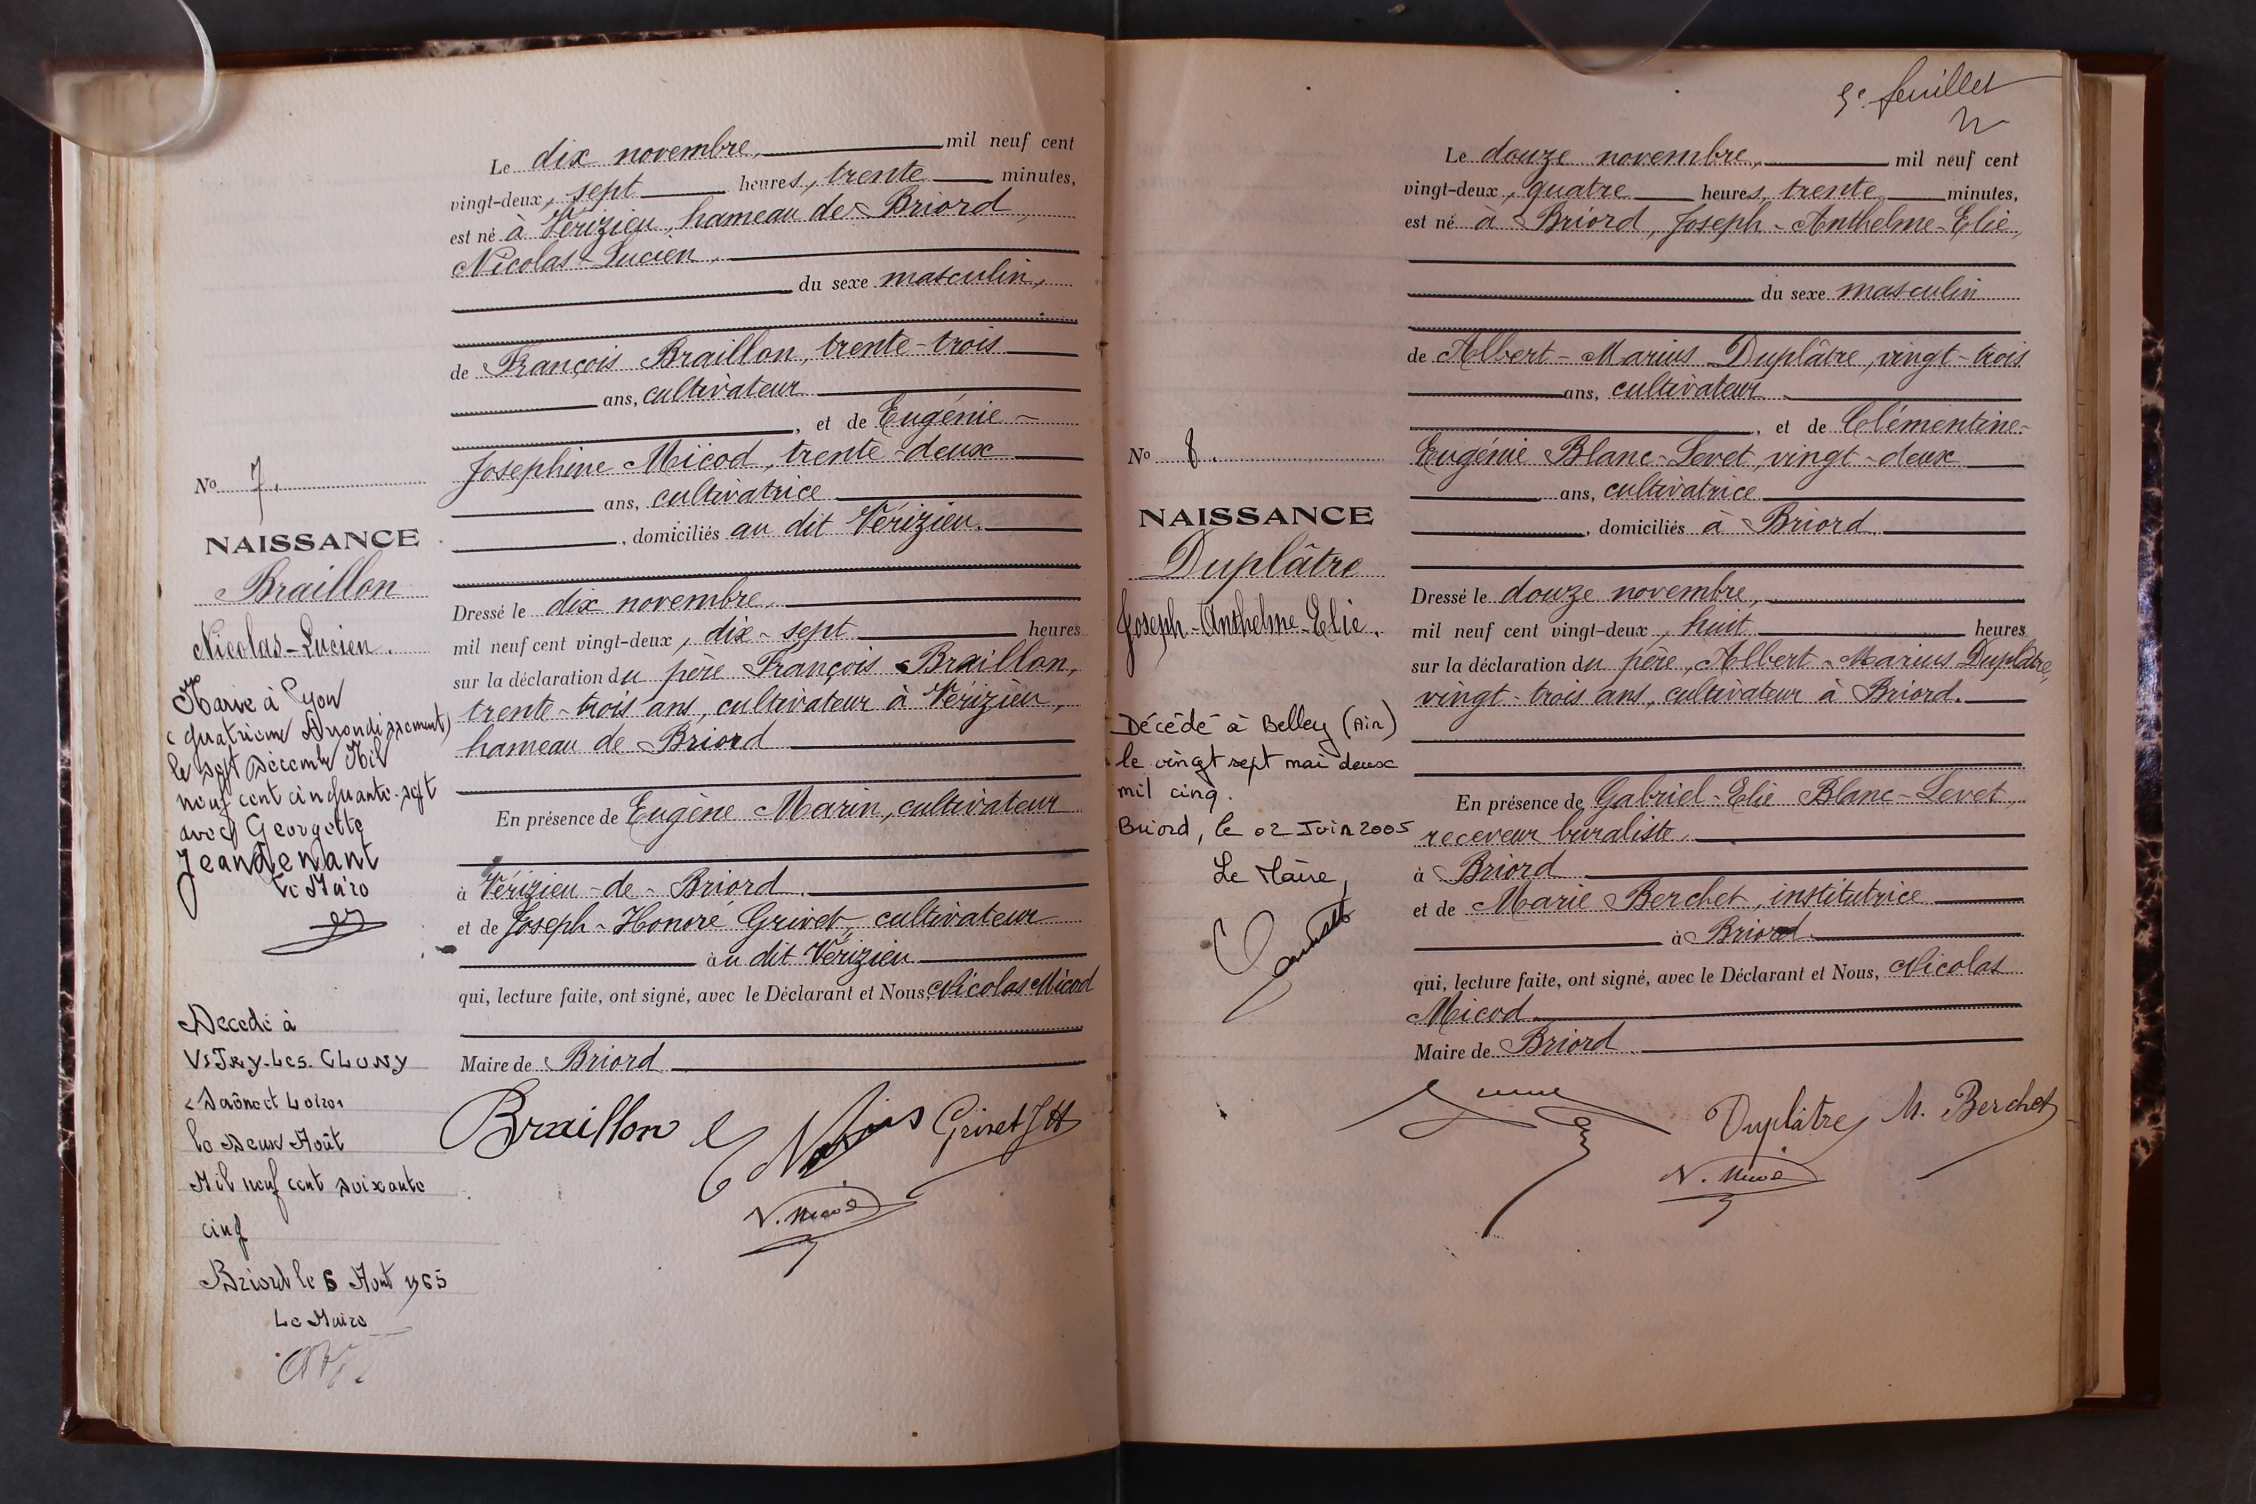 Le dix novembre, mil neuf cent
vingt-deux, sept heures, trente minutes,
est né à Vérizieu, hameau de Briord,
Nicolas-Lucien,
du sexe masculin,
de François Braillon, trente-trois
ans, cultivateur
, et de Eugénie-
Josephine Micod, trente-deux
ans, cultivatrice
, domiciliés au dit Vérizieu.
Dressé le dix novembre,
mil neuf cent vingt-deux, dix-sept heures
sur la déclaration du père François Braillon,
trente-trois ans, cultivateur à Vérizieu,
hameau de Briord
En présence de Eugène Marin, cultivateur
à Vérizieu-de-Briord.
et de Joseph-Honoré Grivet, cultivateur
au dit Vérizieu
qui, lecture faite, ont signé, avec le Déclarant et Nous, Nicolas Micod
Maire de Briord
Braillon
Grivet JH
No 7.
NAISSANCE
Braillon
Nicolas-Lucien.
Marié à Lyon
(quatrième Arrondissement)
le sept Décembre Mil
neuf cent cinquante-sept
avec Georgette
Jeandenant
Le Maire
Decedé à
VITRY-LES-CLUNY
(Saône et Loire)
le Deux Août
Mil neuf cent soixante
cinq
Briord le 6 Aout 1965
Le Maire
5e feuillet
Le douze novembre, mil neuf cent
vingt-deux, quatre heures, trente minutes,
est né à Briord, Joseph-Anthelme-Elie,
du sexe masculin
de Albert-Marius Duplâtre, vingt-trois
ans, cultivateur
, et de Clémentine-
Eugénie Blanc-Levet, vingt-deux
ans, cultivatrice
, domiciliés à Briord
Dressé le douze novembre,
mil neuf cent vingt-deux, huit heures
sur la déclaration du père, Albert-Marius Duplâtre,
vingt-trois ans, cultivateur à Briord.
En présence de Gabriel-Elie Blanc-Levet,
receveur buraliste
à Briord
et de Marie Berchet, institutrice
à Briord
qui, lecture faite, ont signé, avec le Déclarant et Nous, Nicolas
Micod
Maire de Briord
Duplâtre M. Berchet
No 8.
NAISSANCE
Duplâtre
Joseph-Anthelme-Elie.
Décédé à Belley (Ain)
le vingt sept mai deux
mil cinq.
Briord, le 02 Juin 2005
Le Maire,